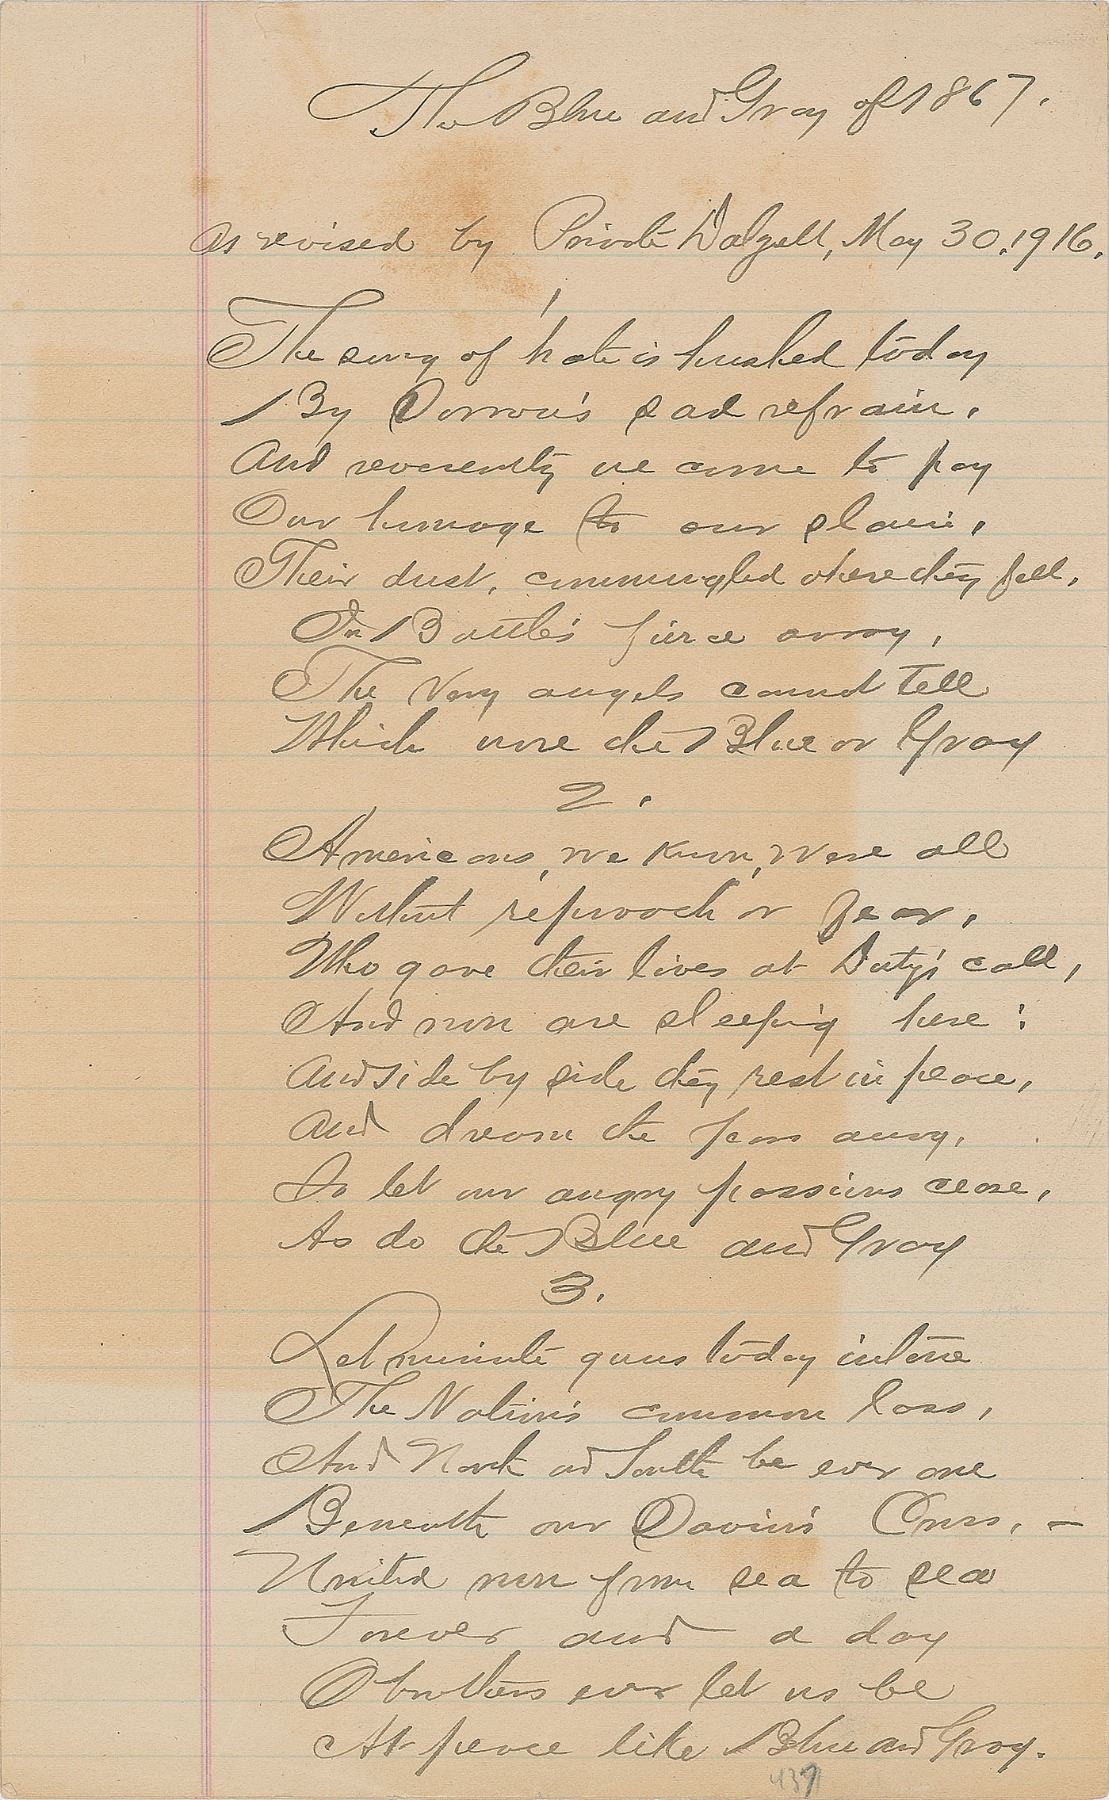 The Blue and Gray of 1867.
as revised by Private Dalzell, May 30. 1916.
1
The song of hate is hushed today
By Sorrow's sad refrain.
And reverently we come to pay
Our homage to our slain.
Their dust, commingled where they fell,
In Battle's fierce array,
The very angels cannot tell
Which wore the Blue or Gray
2.
Americans, we know, were all
Without reproach or fear,
Who gave their lives at Duty's call,
And now are sleeping here:
And side by side they rest in peace,
And dream the years away,
So let our angry passions cease,
As do the Blue and Gray
3.
Let minute guns today intone
The Nation's common loss,
And North and South be ever one
Beneath our Savior's Cross. –
United now from sea to sea
Forever and a day
O brothers ever let us be
At peace like Blue and Gray.
437